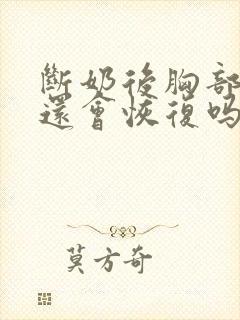 斷奶後胸部
還會恢復吗
莫方奇